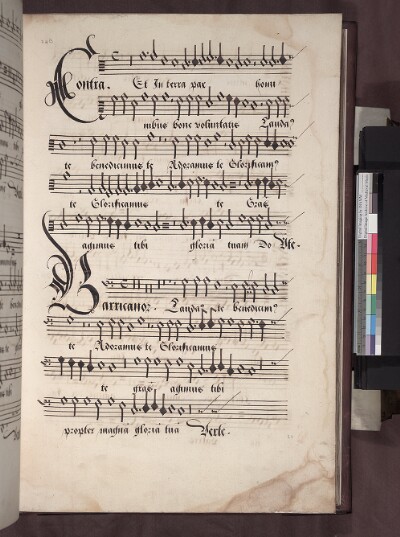 Contra. Et In terra pax homi
nibus bone voluntatis Lauda⁹
te benedicimus te Adoramus te Glorificam⁹
te Glorificamus te Gras
agimus tibi gloriā tuam Do Vte-
Barricanor. Laudam⁹ te benedicim⁹
te Adoramus te Glorificamus
te gras agimus tibi
propter magnā gloriā tuā Verte-